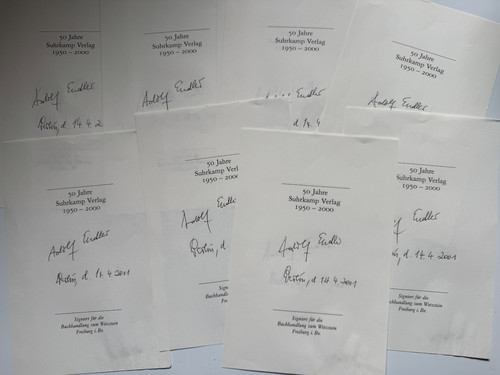 50 Jahre
Suhrkamp Verlag
1950 – 2000
Adolf Endler
Berlin, d. 14. 4. 2
50 Jahre
Suhrkamp Verlag
1950 – 2000
Adolf Endler
50 Jahre
Suhrkamp Verlag
1950 – 2000
Endler
d. 14. 4
50 Jahre
Suhrkamp Verlag
1950 – 2000
Adolf Endler
50 Jahre
Suhrkamp Verlag
1950 – 2000
Adolf Endler
Berlin, d. 14. 4. 2001
50 Jahre
Suhrkamp Verl
1950 – 2000
Adolf Endl
Berlin, d.
Signiert für die
Buchhandlung zum Wetzstein
Freiburg i. Br.
50 Jahre
Suhrkamp Verlag
1950 – 2000
Adolf Endler
Berlin, d. 14. 4. 2001
Signiert für die
Buchhandlung zum Wetzstein
Freiburg i. Br.
50 Jahre
Suhrkamp Verlag
1950 – 2000
Endler
Berlin, d. 14. 4. 2001
Signiert für die
Buchhandlung zum Wetzstein
Freiburg i. Br.